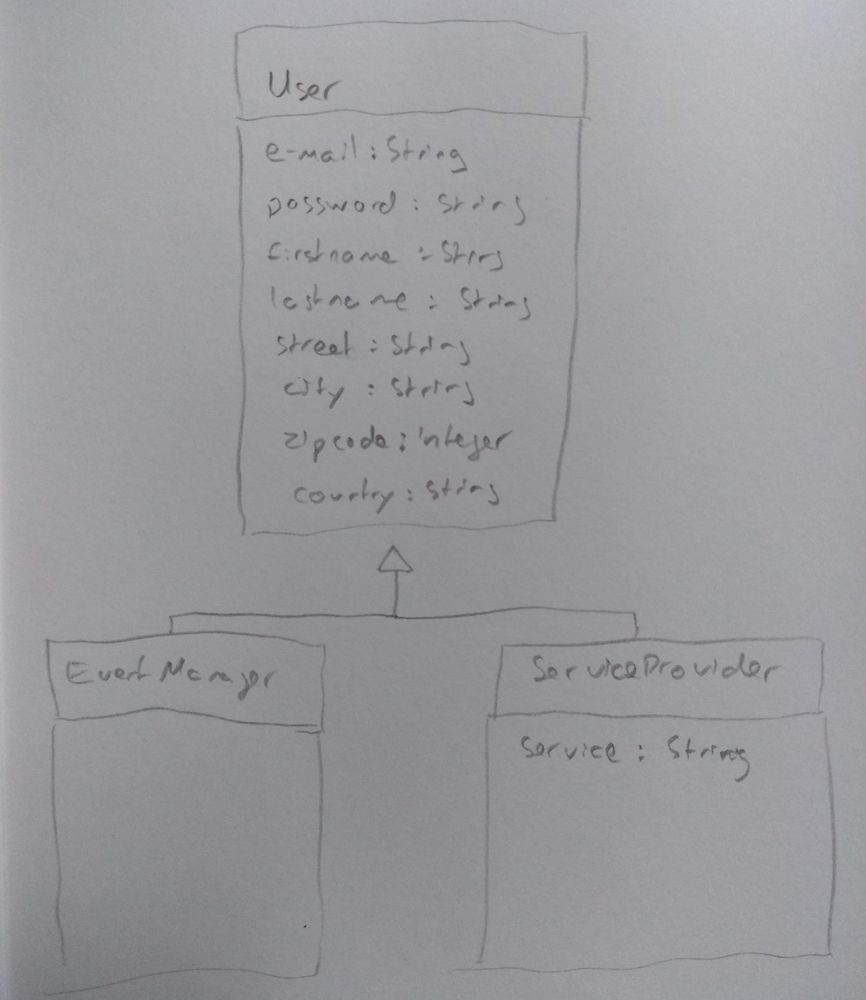 User
e-mail : String
password : String
firstname : String
lastname : String
street : String
city : String
zipcode : integer
country : String
EventManager
ServiceProvider
Service : String